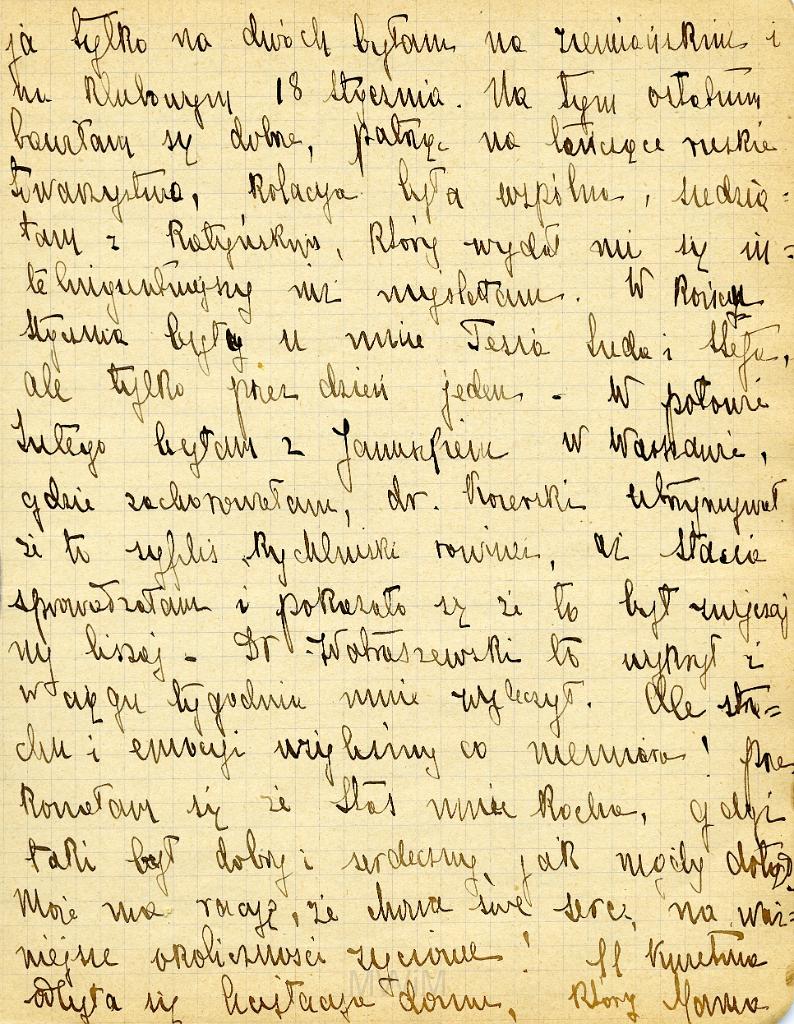 ja tylko na dwóch byłam na ziemiańskim i
na klubowym 18 stycznia. Na tym ostatnim
bawiłam się dobrze, patrząc na tańczące ruskie
towarzystwo, kolacya była wspólna, siedzia=
łam z Ratyńskim, który wydał mi się in=
teligentniejszy niż myślałam. W końcu
stycznia były u mnie Tesia Luda i Stefa,
ale tylko przez dzień jeden - W połowie
Lutego byłam z Januszkiem w Warszawie,
gdzie zachorowałam, dr. Kozerski utrzymywał
że to syfilis, Rychliński również, aż Stasia
sprowadzałam i pokazało się że to był zwyczaj
ny liszaj - Dr Watraszewski to wykrył i
w ciągu tygodnia mnie wyleczył. Ale stra=
chu i emocyi wzięliśmy co niemiara! prze
konałam się że Staś mnie kocha, gdyż
taki był dobry i serdeczny, jak nigdy dotąd
Może ma racyę, że chowa swe serce, na waż=
niejsze okoliczności życiowe! 11 Kwietnia
odbyła się licytacya domu, który Mama